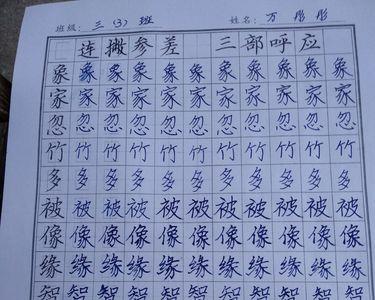 班级: 三 (3) 班 姓名: 万 彤彤
连撇参差 三部呼应
象象象象象象象象象象象
家家家家家家家家家家家
忽忽忽忽忽忽忽忽忽忽忽
竹竹竹竹竹竹竹竹竹竹竹
多多多多多多多多多多多
被被被被被被被被被被被
像像像像像像像像像像像
缘缘缘缘缘缘缘缘缘缘缘
智智智智智智智智智智智